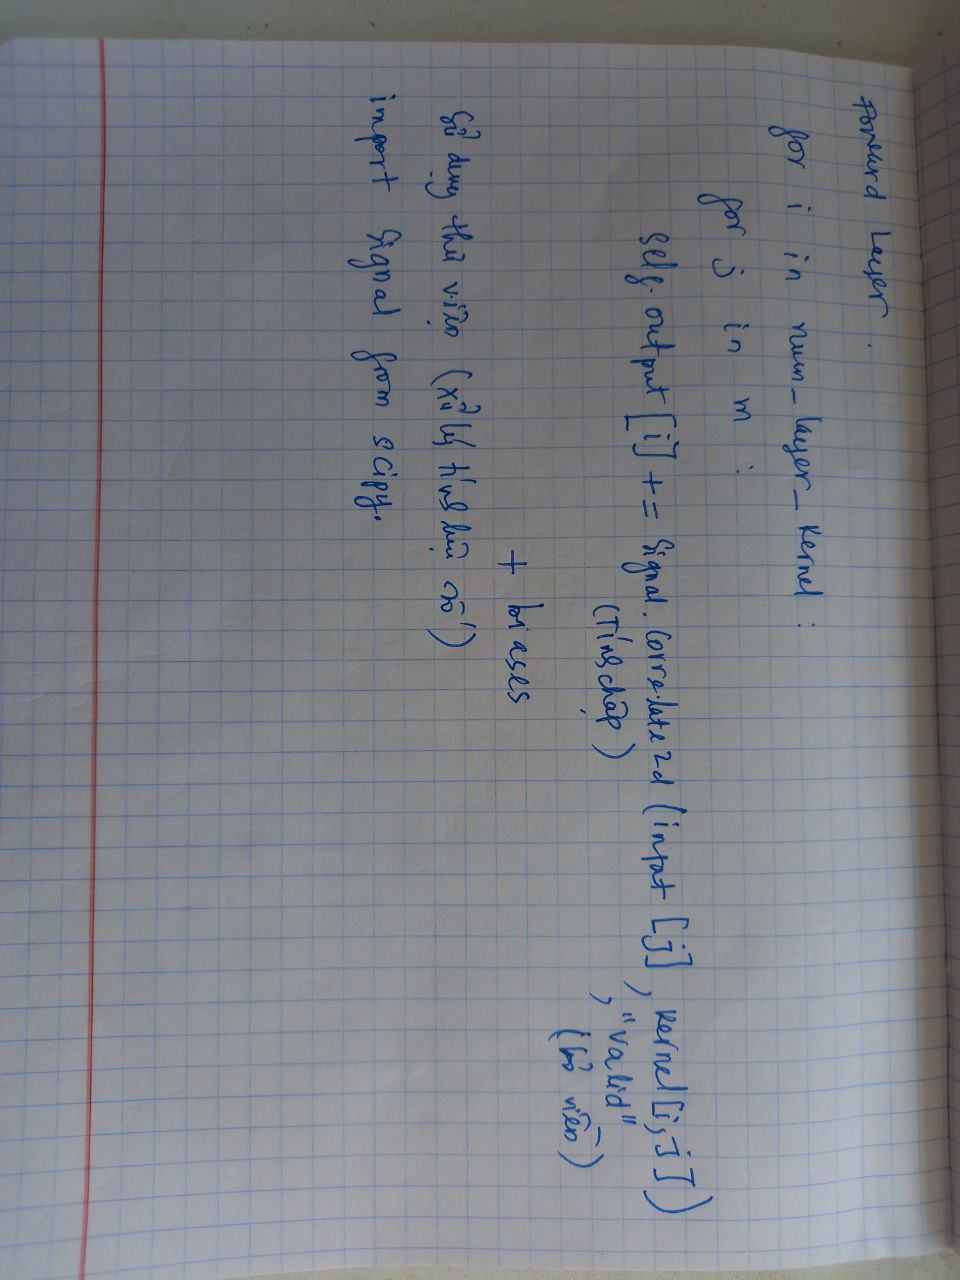 Forward Layer.
for i in num_layer_kernel :
for j in m :
self.output [i] += Signal.Correlate2d (input [j], kernel [i, j])
(Tính chập)
, "valid"
(bỏ viền)
+ biases
Sử dụng thư viện (xử lý tính hiệu số)
import Signal from scipy.